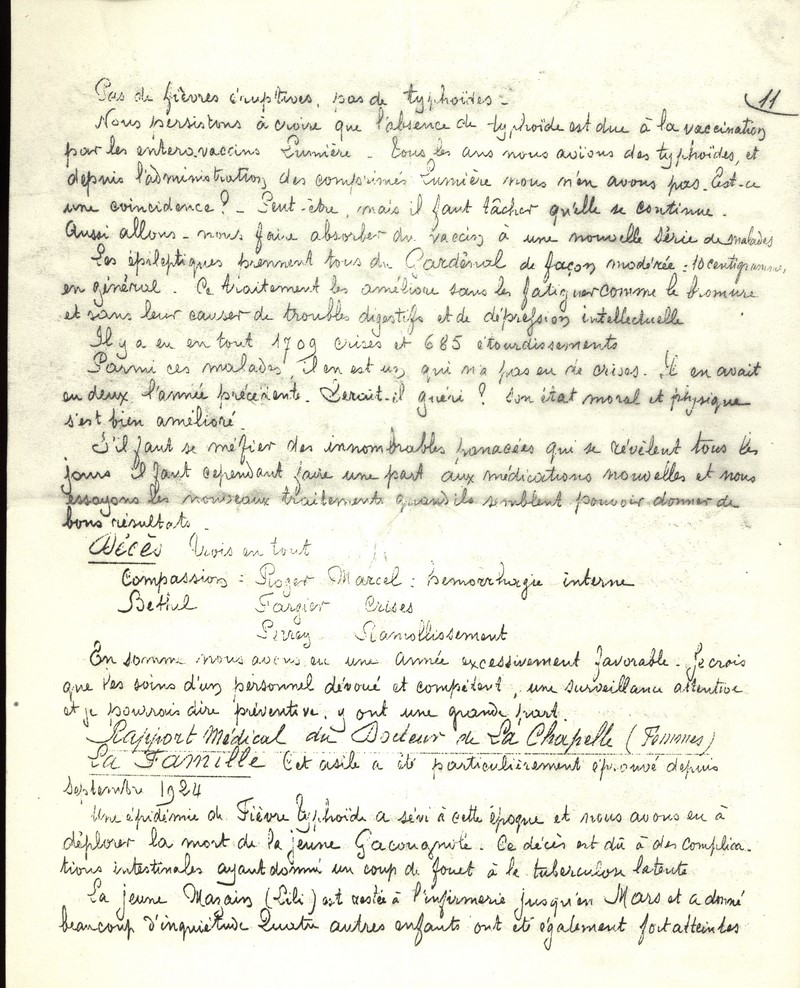 11
Pas de fièvres éruptives, pas de typhoïdes -
Nous persistons à croire que l'absence de typhoïde est due à la vaccination
par les entero vaccins Lumière - Tous les ans nous avions des typhoïdes, et
depuis l'administration des comprimés Lumière nous n'en avons pas. Est-ce
une coincidence ? - Peut-être, mais il faut tâcher qu'elle se continue.
Aussi allons-nous faire absorber du vaccin à une nouvelle série de malades
Les épileptiques prennent tous du Gardénal de façon modérée : 10 centigrammes,
en général. Ce traitement les améliore sans les fatiguer comme le bromure
et sans leur causer de troubles digestifs et de dépression intellectuelle
Il y a eu en tout 1709 crises et 685 étourdissements
Parmi ces malades, il en est un qui n'a pas eu de crises. Il en avait
eu deux l'année précédente. Serait-il guéri ? Son état moral et physique
s'est bien amélioré.
S'il faut se méfier des innombrables panacées qui se révèlent tous les
jours il faut cependant faire une part aux médications nouvelles et nous
essayons les nouveaux traitements quand ils semblent pouvoir donner de
bons résultats.
Décès Trois en tout
Compassion : Roger Marcel : hemorrhagie interne
Bethel Fargier Crises
Perrey Ramollissement
En somme nous avons eu une année excessivement favorable - Je crois
que les soins d'un personnel dévoué et compétent, une surveillance attentive
et je pourrais dire préventive, y ont une grande part.
Rapport Médical du Docteur de La Chapelle (Femmes)
La Famille Cet asile a été particulièrement éprouvé depuis
Septembre 1924
Une épidémie de Fièvre typhoïde a sévi à cette époque et nous avons eu à
déplorer la mort de la jeune Gacougnole. Ce décès est dû à des complica-
tions intestinales ayant donné un coup de fouet à la tuberculose latente
La jeune Mazain (Lili) est restée à l'infirmerie jusqu'en Mars et a donné
beaucoup d'inquiétude Quatre autres enfants ont été également fort atteintes